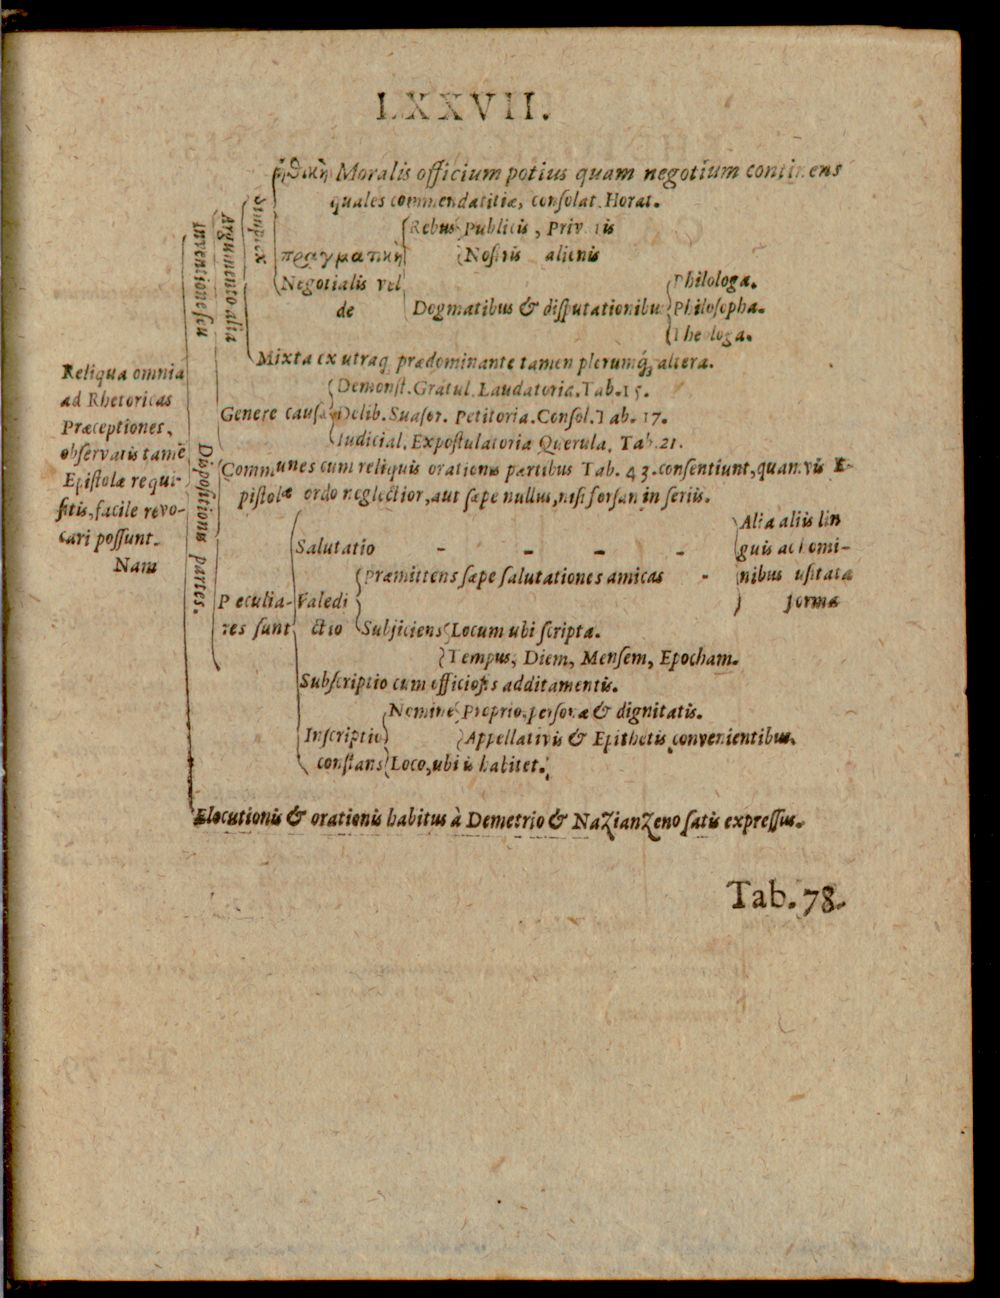 LXXVII.
Reliqua omnia
ad Rhetoricas
Præceptiones,
observatis tamē
Epistolæ requi-
sitis, facile revo-
cari possunt.
Nam
Inventione seu
Argumento alia
Simplex
ἠθικὴ Moralis officium potius quam negotium continens
quales commendatitiæ, consolat. Horat.
πραγματικὴ
Negotialis vel
de
Rebus Publicis, Privatis
Nostris alienis
Dogmatibus & disputationibus
Philologa.
Philosopha.
Theologa.
Mixta ex utraq; prædominante tamen plerumq; altera.
Genere causæ
Demonst. Gratul. Laudatoria. Tab. 15.
Delib. Suasor. Petitoria. Consol. Tab. 17.
Iudicial. Expostulatoria Querula. Tab. 21.
Dispositionis partes.
Communes cum reliquis orationis partibus Tab. 43. consentiunt, quamvis E-
pistolæ ordo neglectior, aut sæpe nullus, nisi forsan in seriis.
Peculia-
res sunt
Salutatio - - - -
Valedi
ctio
Præmittens sæpe salutationes amicas -
Alia aliis lin
guis ac homi-
nibus usitata
forma
Subjiciens Locum ubi scripta.
Tempus, Diem, Mensem, Epocham.
Subscriptio cum officiosis additamentis.
Inscriptio
constans
Nomine Proprio, personæ & dignitatis.
Appellativis & Epithetis convenientibus.
Loco, ubi is habitet.
Elocutionis & orationis habitus à Demetrio & Nazianzeno satis expressus.
Tab. 78.